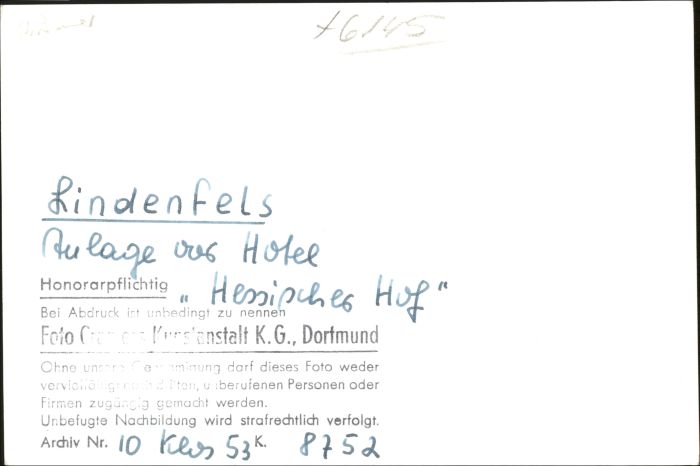 +6145
Lindenfels
Anlage vor Hotel
Honorarpflichtig
„ Hessischer Hof “
Bei Abdruck ist unbedingt zu nennen
Foto Cramers Kunstanstalt K.G., Dortmund
Ohne unsere Genehmigung darf dieses Foto weder
vervielfältigt noch dritten, unberufenen Personen oder
Firmen zugängig gemacht werden.
Unbefugte Nachbildung wird strafrechtlich verfolgt.
Archiv Nr. 10 53 K. 8752